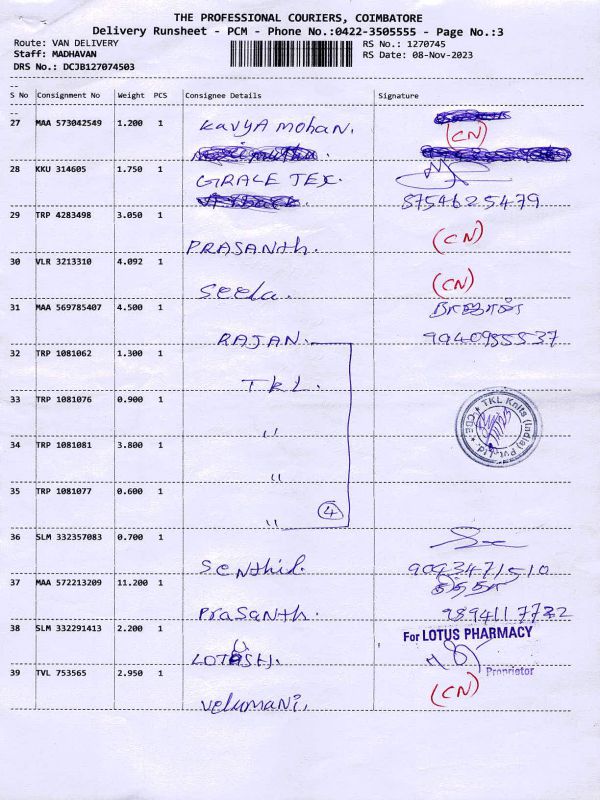 THE PROFESSIONAL COURIERS, COIMBATORE
Delivery Runsheet - PCM - Phone No.:0422-3505555 - Page No.:3
Route: VAN DELIVERY
RS No.: 1270745
Staff: MADHAVAN
RS Date: 08-Nov-2023
DRS No.: DCJB127074503
S No Consignment No Weight PCS Consignee Details Signature
27 MAA 573042549 1.200 1 Kavya mohan. (CN)
28 KKU 314605 1.750 1 GIRACE TEX.
8754625479
29 TRP 4283498 3.050 1 PRASANTh. (CN)
30 VLR 3213310 4.092 1 Seela. (CN)
31 MAA 569785407 4.500 1 RAJAN.
9940955537
32 TRP 1081062 1.300 1 TKL.
33 TRP 1081076 0.900 1 "
TKL Knits (India) Pvt. Ltd. * CBE *
34 TRP 1081081 3.800 1 "
35 TRP 1081077 0.600 1 " 4
36 SLM 332357083 0.700 1 Senthil.
9093471510
37 MAA 572213209 11.200 1 Prasanth.
9894117732
38 SLM 332291413 2.200 1
For LOTUS PHARMACY
Proprietor
39 TVL 753565 2.950 1 Velumani. (CN)